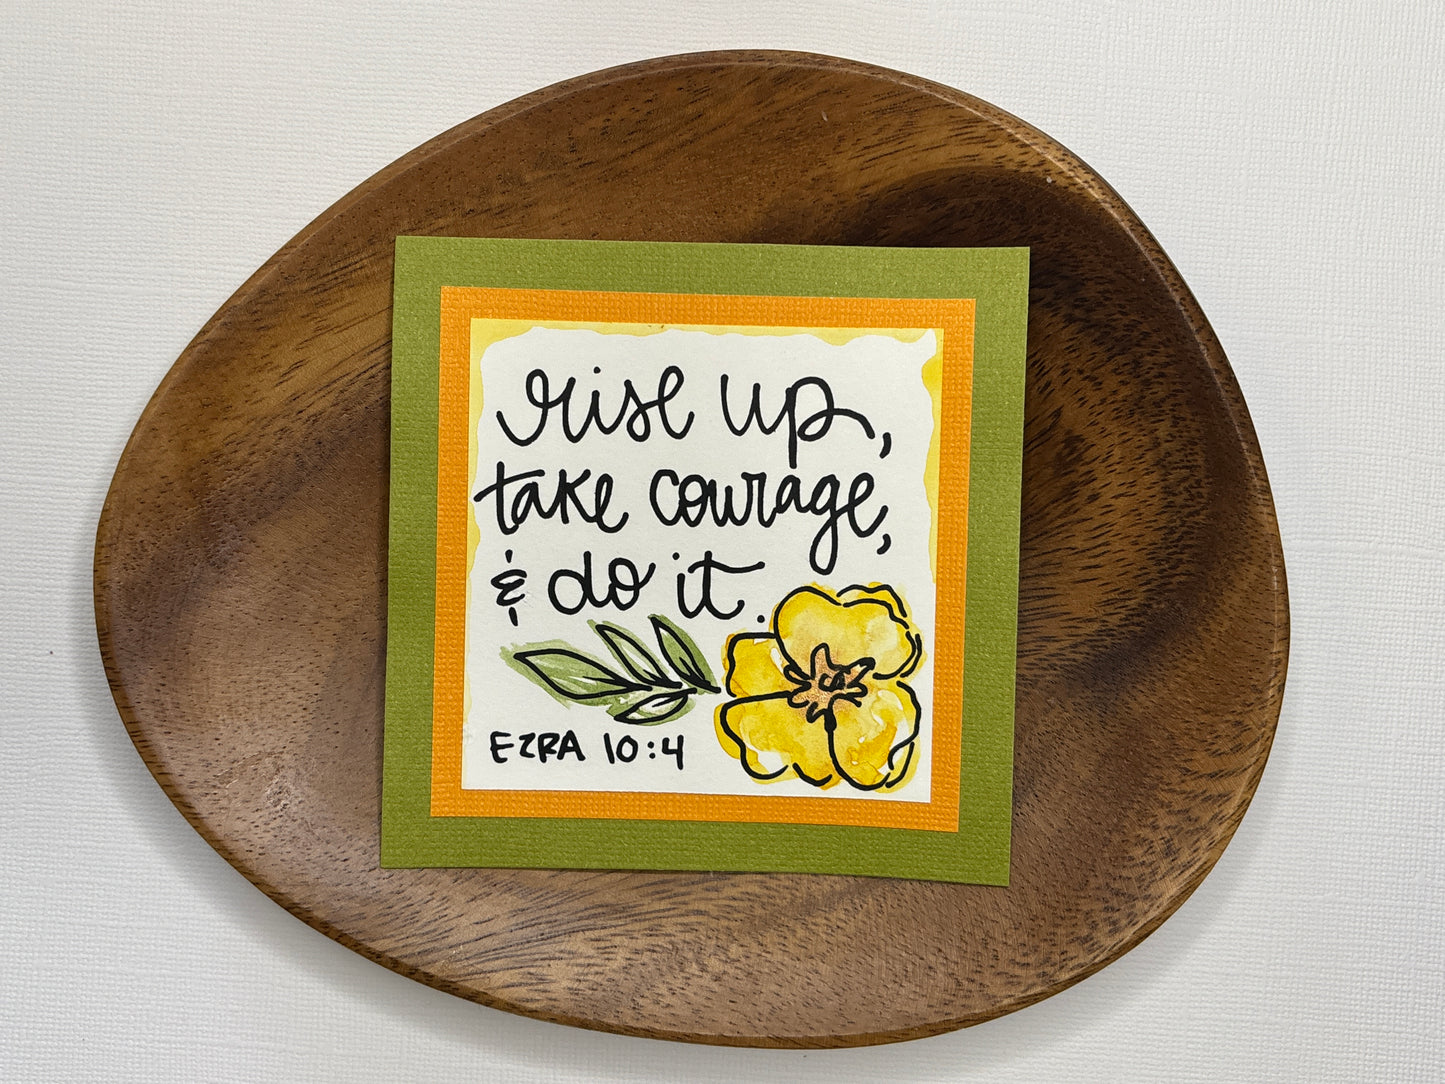 rise up,
take courage,
& do it.
EZRA 10:4